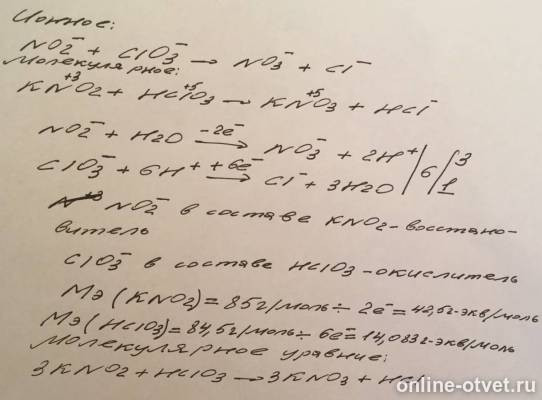 Ионное:
NO2⁻ + ClO3⁻ → NO3⁻ + Cl⁻
Молекулярное:
+3 +5 +5
KNO2 + HClO3 → KNO3 + HCl⁻
NO2⁻ + H2O -2e⁻→ NO3⁻ + 2H⁺ | 6 | 3
ClO3⁻ + 6H⁺ +6e⁻→ Cl⁻ + 3H2O | 1
NO2⁻ в составе KNO2 - восстано-
витель
ClO3⁻ в составе HClO3 - окислитель
Мэ (KNO2) = 85г/моль ÷ 2e⁻ = 42,5г-экв/моль
Мэ (HClO3) = 84,5г/моль ÷ 6e⁻ = 14,083г-экв/моль
Молекулярное уравние:
3KNO2 + HClO3 → 3KNO3 + HCl
online-otvet.ru